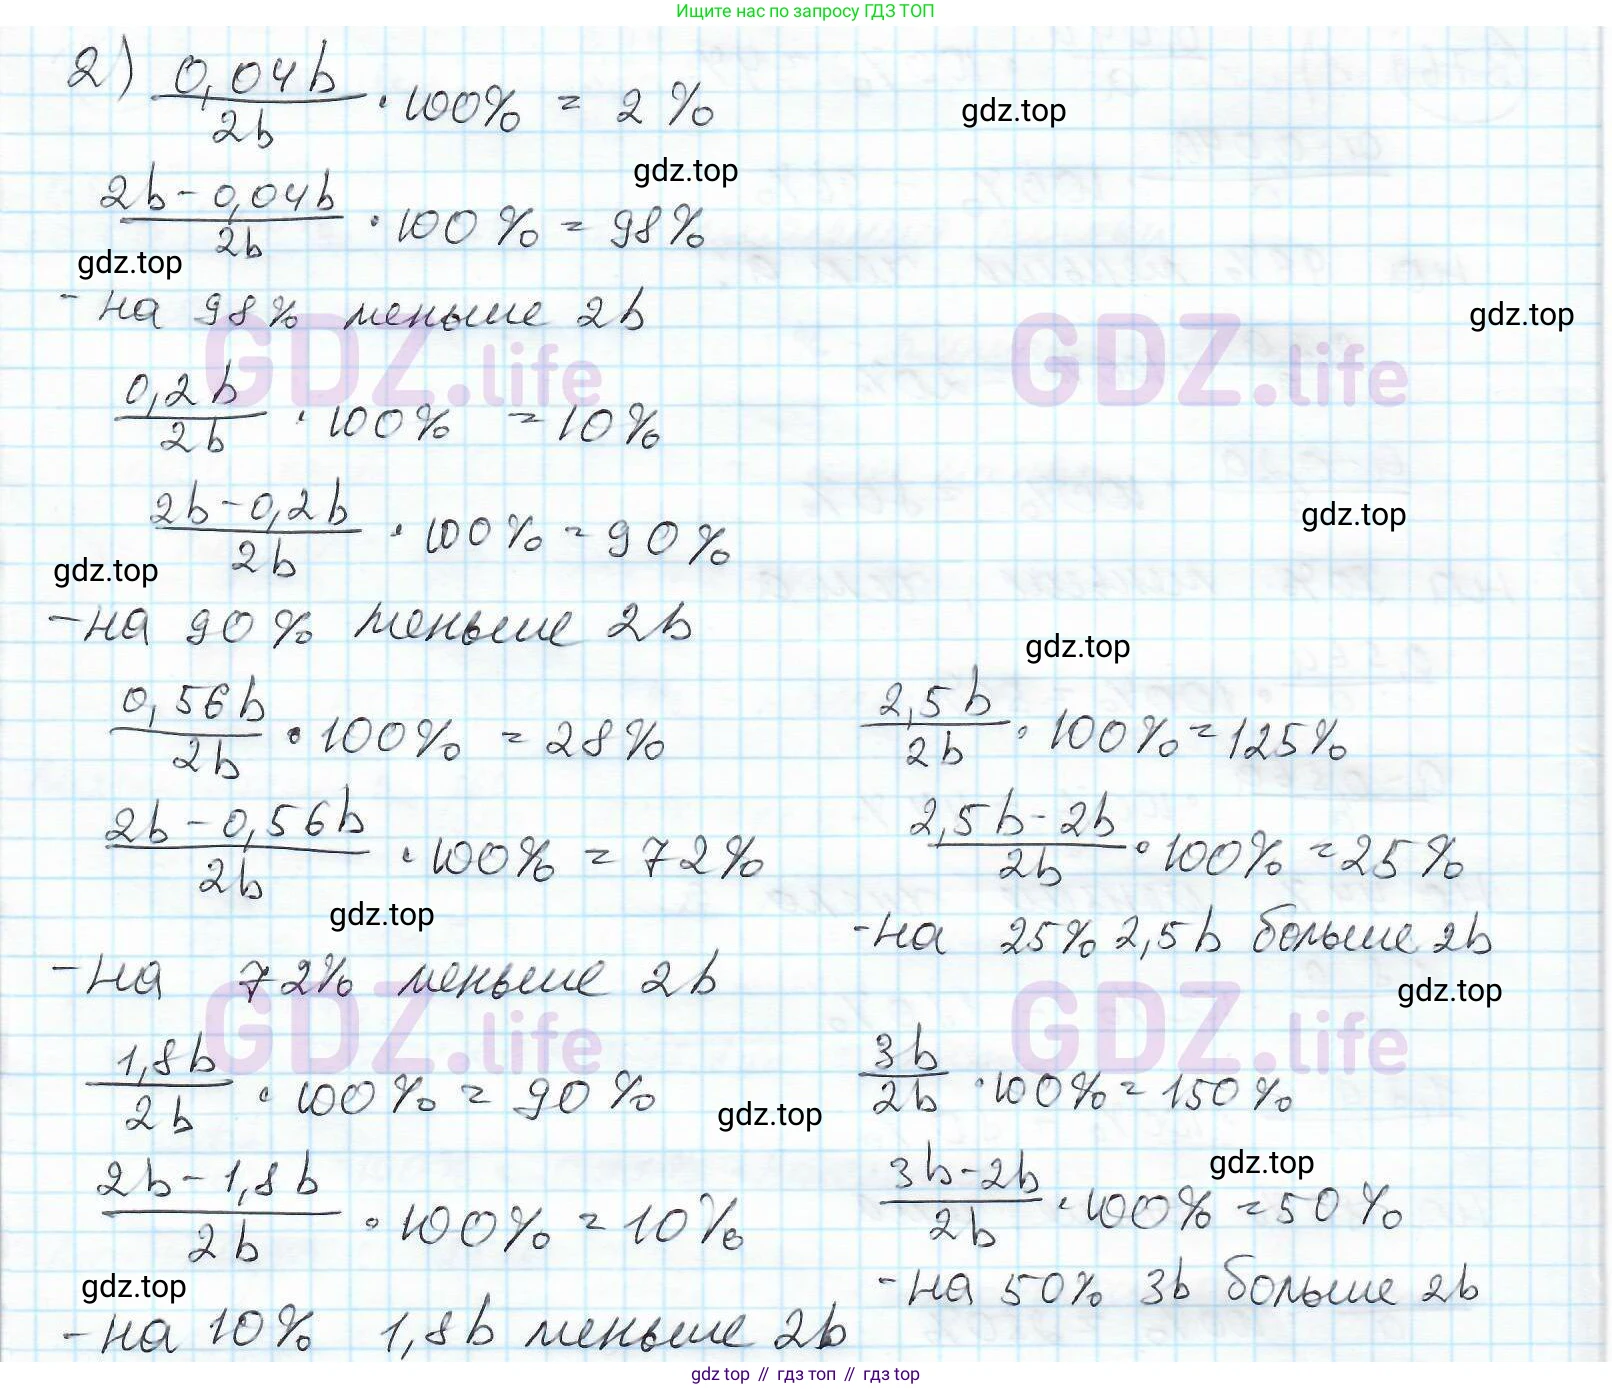 Ищите нас по запросу ГДЗ ТОП
2) 0,04b / 2b · 100% = 2%
gdz.top
gdz.top
2b - 0,04b / 2b · 100% = 98%
gdz.top
- на 98% меньше 2b
gdz.top
GDZ.life GDZ.life
0,2b / 2b · 100% = 10%
2b - 0,2b / 2b · 100% = 90%
gdz.top
gdz.top
- на 90% меньше 2b
0,56b / 2b · 100% = 28%
2b - 0,56b / 2b · 100% = 72%
gdz.top
- на 72% меньше 2b
GDZ.life
1,8b / 2b · 100% = 90%
gdz.top
2b - 1,8b / 2b · 100% = 10%
gdz.top
- на 10% 1,8b меньше 2b
gdz.top
2,5b / 2b · 100% = 125%
2,5b - 2b / 2b · 100% = 25%
- на 25% 2,5b больше 2b
gdz.top
GDZ.life
3b / 2b · 100% = 150%
gdz.top
3b - 2b / 2b · 100% = 50%
- на 50% 3b больше 2b
gdz top // гдз топ // гдз top